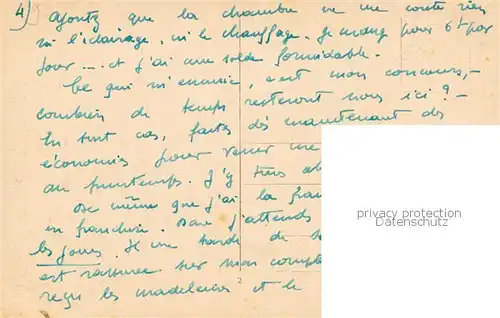 4) Ajoutez que la chambre ne me coute rien
ni l'éclairage, ni le chauffage. Je mange pour 6f par
jour ... et j'ai une solde formidable.
Ce qui m'ennuie, c'est mon concours, -
combien de temps resteront nous ici ? -
En tout cas, faites dès maintenant des
économies pour venir me
au printemps. J'y tiens ab
De même que j'ai la fran
en franchise. j'attends
les joues. de
est rassurée sur mon compte
reçu les madeleines et le
2
privacy protection
AnsichtskartenPool.de